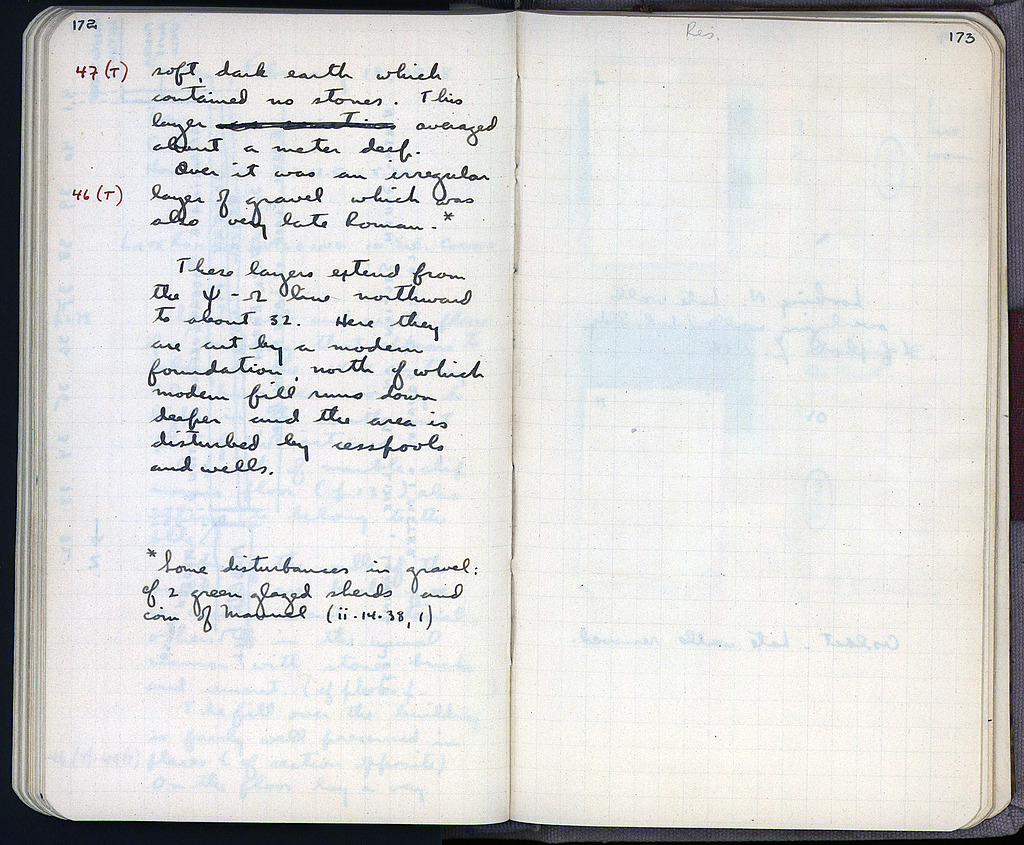 172
47 (T) soft, dark earth which
contained no stones. This
layer averaged
about a meter deep.
Over it was an irregular
46 (T) layer of gravel which was
also very late Roman. *
These layers extend from
the ψ-Ω line northward
to about 32. Here they
are cut by a modern
foundation, north of which
modern fill runs down
deeper and the area is
disturbed by cesspools
and wells.
* Some disturbances in gravel:
cf 2 green glazed sherds and
coin of Manuel (ii-14-38, 1)
Res.
173